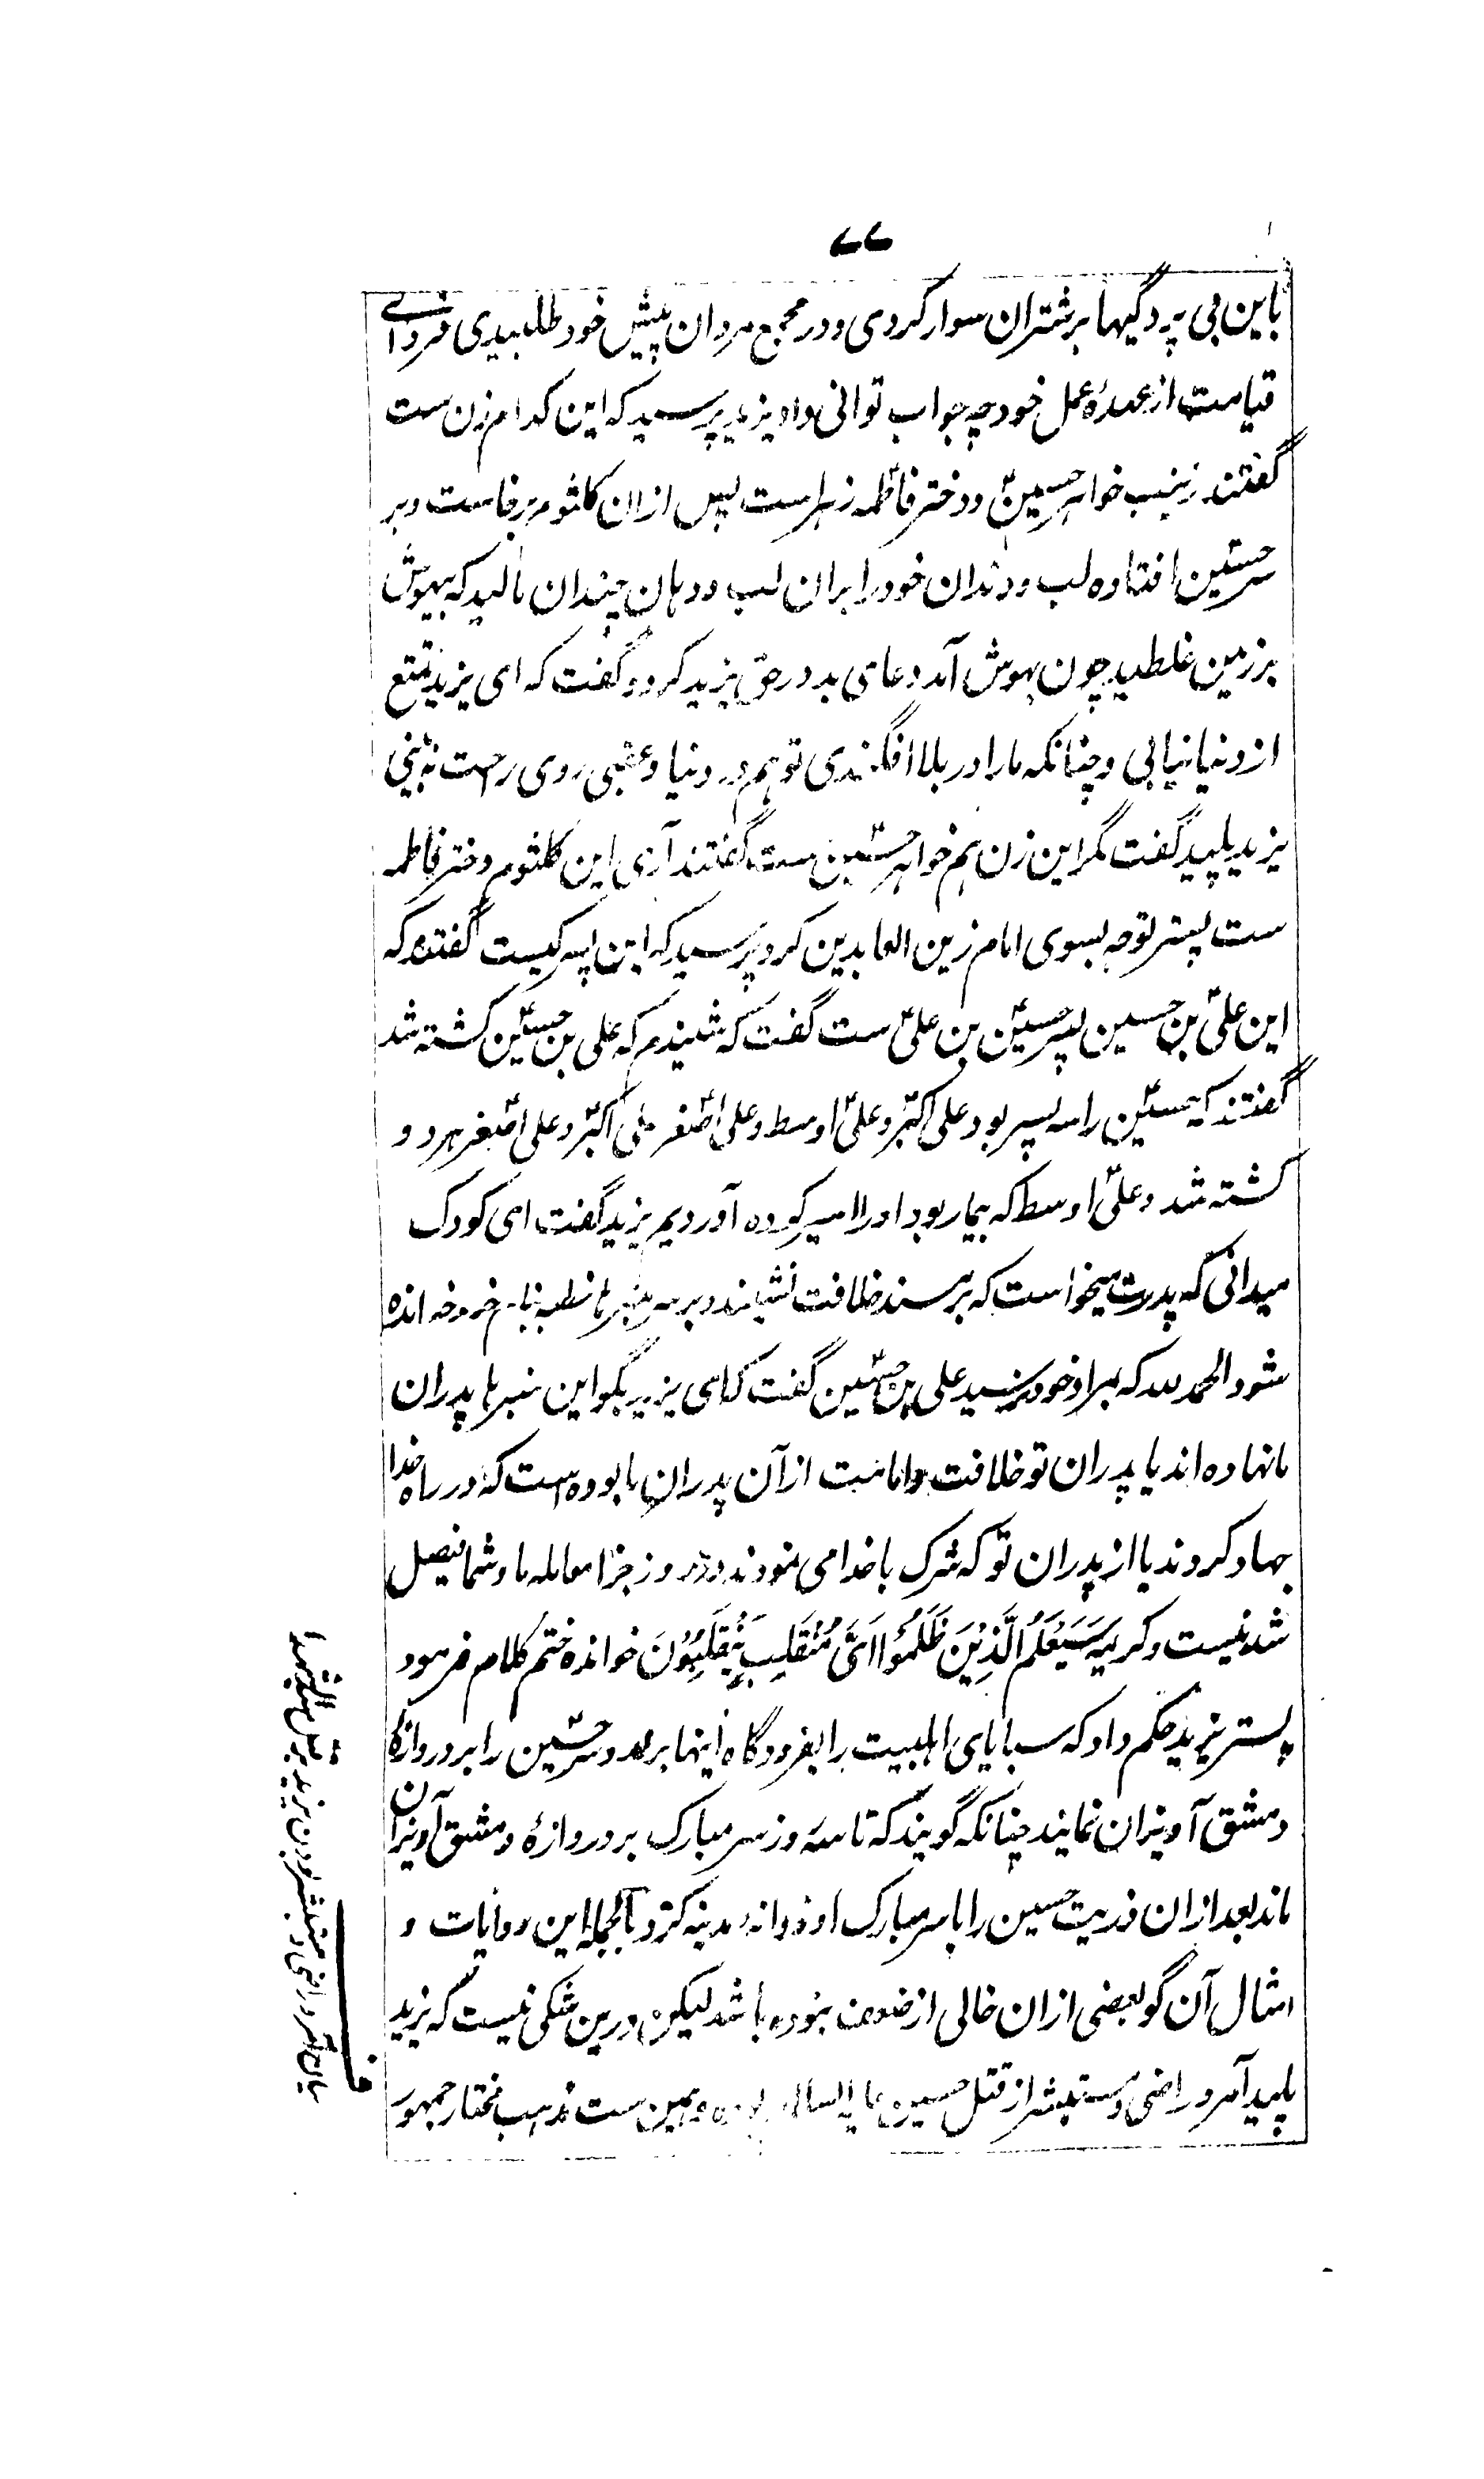 ۷۷
باین بی پردگیها بر شتران سوار کردی و در مجمع مردان پیش خود طلبیدی فردای
قیامت از عهدهٔ عمل خود چه جواب توانی داد یزید پرسید که این کدام زن ست
گفتند زینب خواهر حسینؑ و دختر فاطمه زهراست پس ازان کلثوم برخاست و بر
سر حسینؑ افتاده لب و دندان خود را بران لب و دهان چندان مالید که بیهوش
بر زمین غلطید چون بهوش آمد دعای بد در حق یزید کرد و گفت که ای یزید تمتع
از دنیا نیابی و چنانکه ما را در بلا افگندی تو هم در دنیا و عقبی روی رحمت نه بینی
یزید پلید گفت مگر این زن هم خواهر حسینؑ ست گفتند آری این کلثوم دختر فاطمه
ست پستر توجه بسوی امام زین العابدین کرد پرسید که این پسر کیست گفتند که
این علیؑ بن حسین پسر حسینؑ بن علیؑ ست گفت که شنیدم که علی بن حسینؑ کشته شد
گفتند که حسینؑ را سه پسر بود علی اکبرؑ و علیؑ اوسط و علی اصغرؑ علی اکبرؑ و علی اصغرؑ هر دو
کشته شد و علیؑ اوسط که بیمار بود او را اسیر کرده آوردیم یزید گفت ای کودک
میدانی که پدرت میخواست که بر مسند خلافت نشیند و بر سر منبرها خطبه بنام خود خوانده
شود الحمد لله که بمراد خود نرسید علی بن حسینؑ گفت که ای یزید بگو این منبرها پدران
ما نهاده اند یا پدران تو خلافت و امامت از آن پدران ما بوده است که در راه خدا
جهاد کردند یا از پدران تو که شرک با خدا می نمودند و در روز جزا معامله ما و شما فیصل
شدنیست و کریمه سَيَعْلَمُ الَّذِيْنَ ظَلَمُوْا اَيَّ مُنْقَلَبٍ يَّنْقَلِبُوْنَ خوانده ختم کلام فرمود
پستر یزید حکم داد که سبایای اهلبیت را بفرودگاه اینها برند و سر حسینؑ را بر دروازهٔ
دمشق آویزان نمایند چنانکه گویند که تا سه روز سر مبارک بر دروازهٔ دمشق آویزان
ماند بعد ازان ذریت حسین را با سر مبارک او روانه مدینه کرد بالجمله این روایات و
امثال آن گو بعضی ازان خالی از ضعف نبوده باشد لیکن درین شکی نیست که یزید
پلید آمر و راضی و مستبشر از قتل حسین علیه السلام بوده و همین ست مذهب مختار جمهور
ف
بیان آمر و راضی و مستبشر بودن یزید بر قتل سید الشهدا